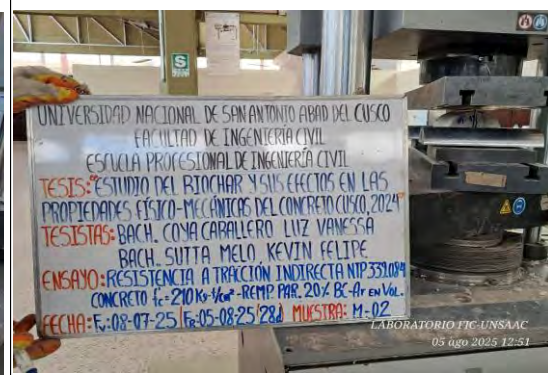 S
UNIVERSIDAD NACIONAL DE SAN ANTONIO ABAD DEL CUSCO
FACULTAD DE INGENIERÍA CIVIL
ESCUELA PROFESIONAL DE INGENIERÍA CIVIL
TESIS: "ESTUDIO DEL BIOCHAR Y SUS EFECTOS EN LAS
PROPIEDADES FÍSICO-MECÁNICAS DEL CONCRETO CUSCO, 2024"
TESISTAS: BACH. COYA CABALLERO LUZ VANESSA
BACH. SUTTA MELO KEVIN FELIPE
ENSAYO: RESISTENCIA A TRACCIÓN INDIRECTA NTP 339.084
CONCRETO f'c=210 Kg-f/cm² - REMP. PAR. 20% BC-Ar EN VOL.
FECHA: Fv:08-07-25/FR:05-08-25/28d MUESTRA: M-02
LABORATORIO FIC-UNSAAC
05 ago 2025 12:51